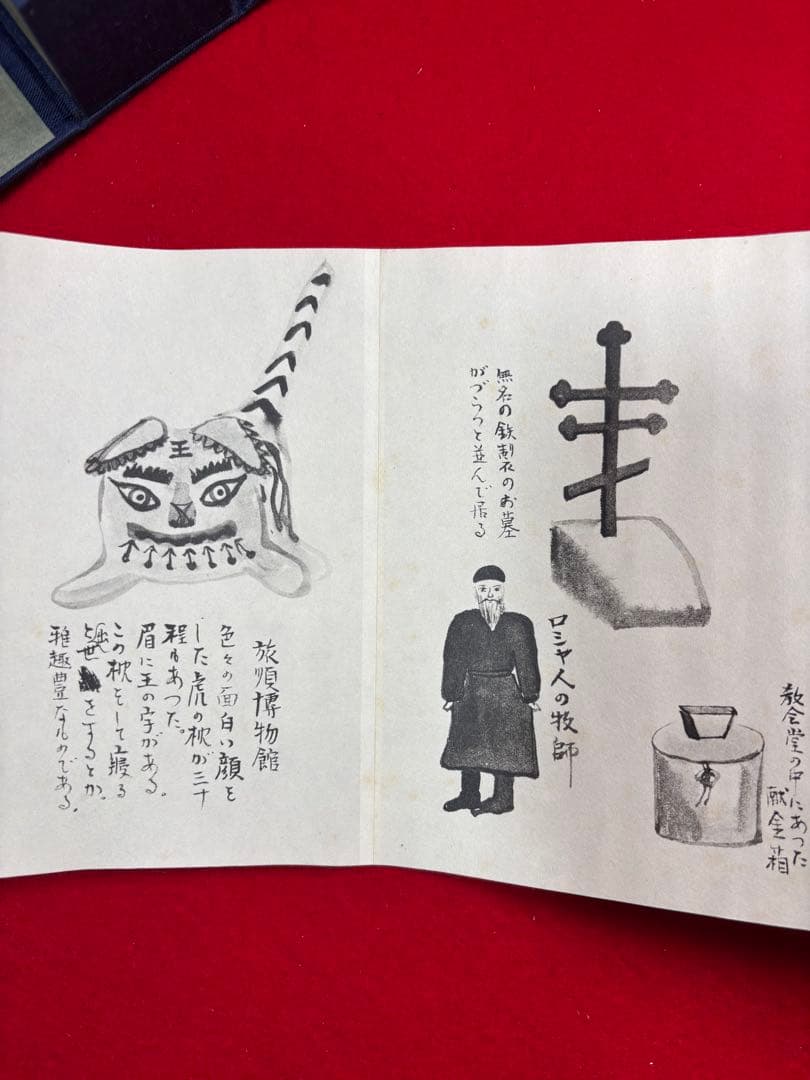 無名の鉄製のお墓
がづらつと並んで居る
ロシヤ人の牧師
教会堂の中にあった
献金箱
王
旅順博物館
色々の面白い顔を
した虎の枕が三十
程もあつた。
眉に王の字がある。
この枕をして寝る
世をするとか。
雅趣豊なものである。